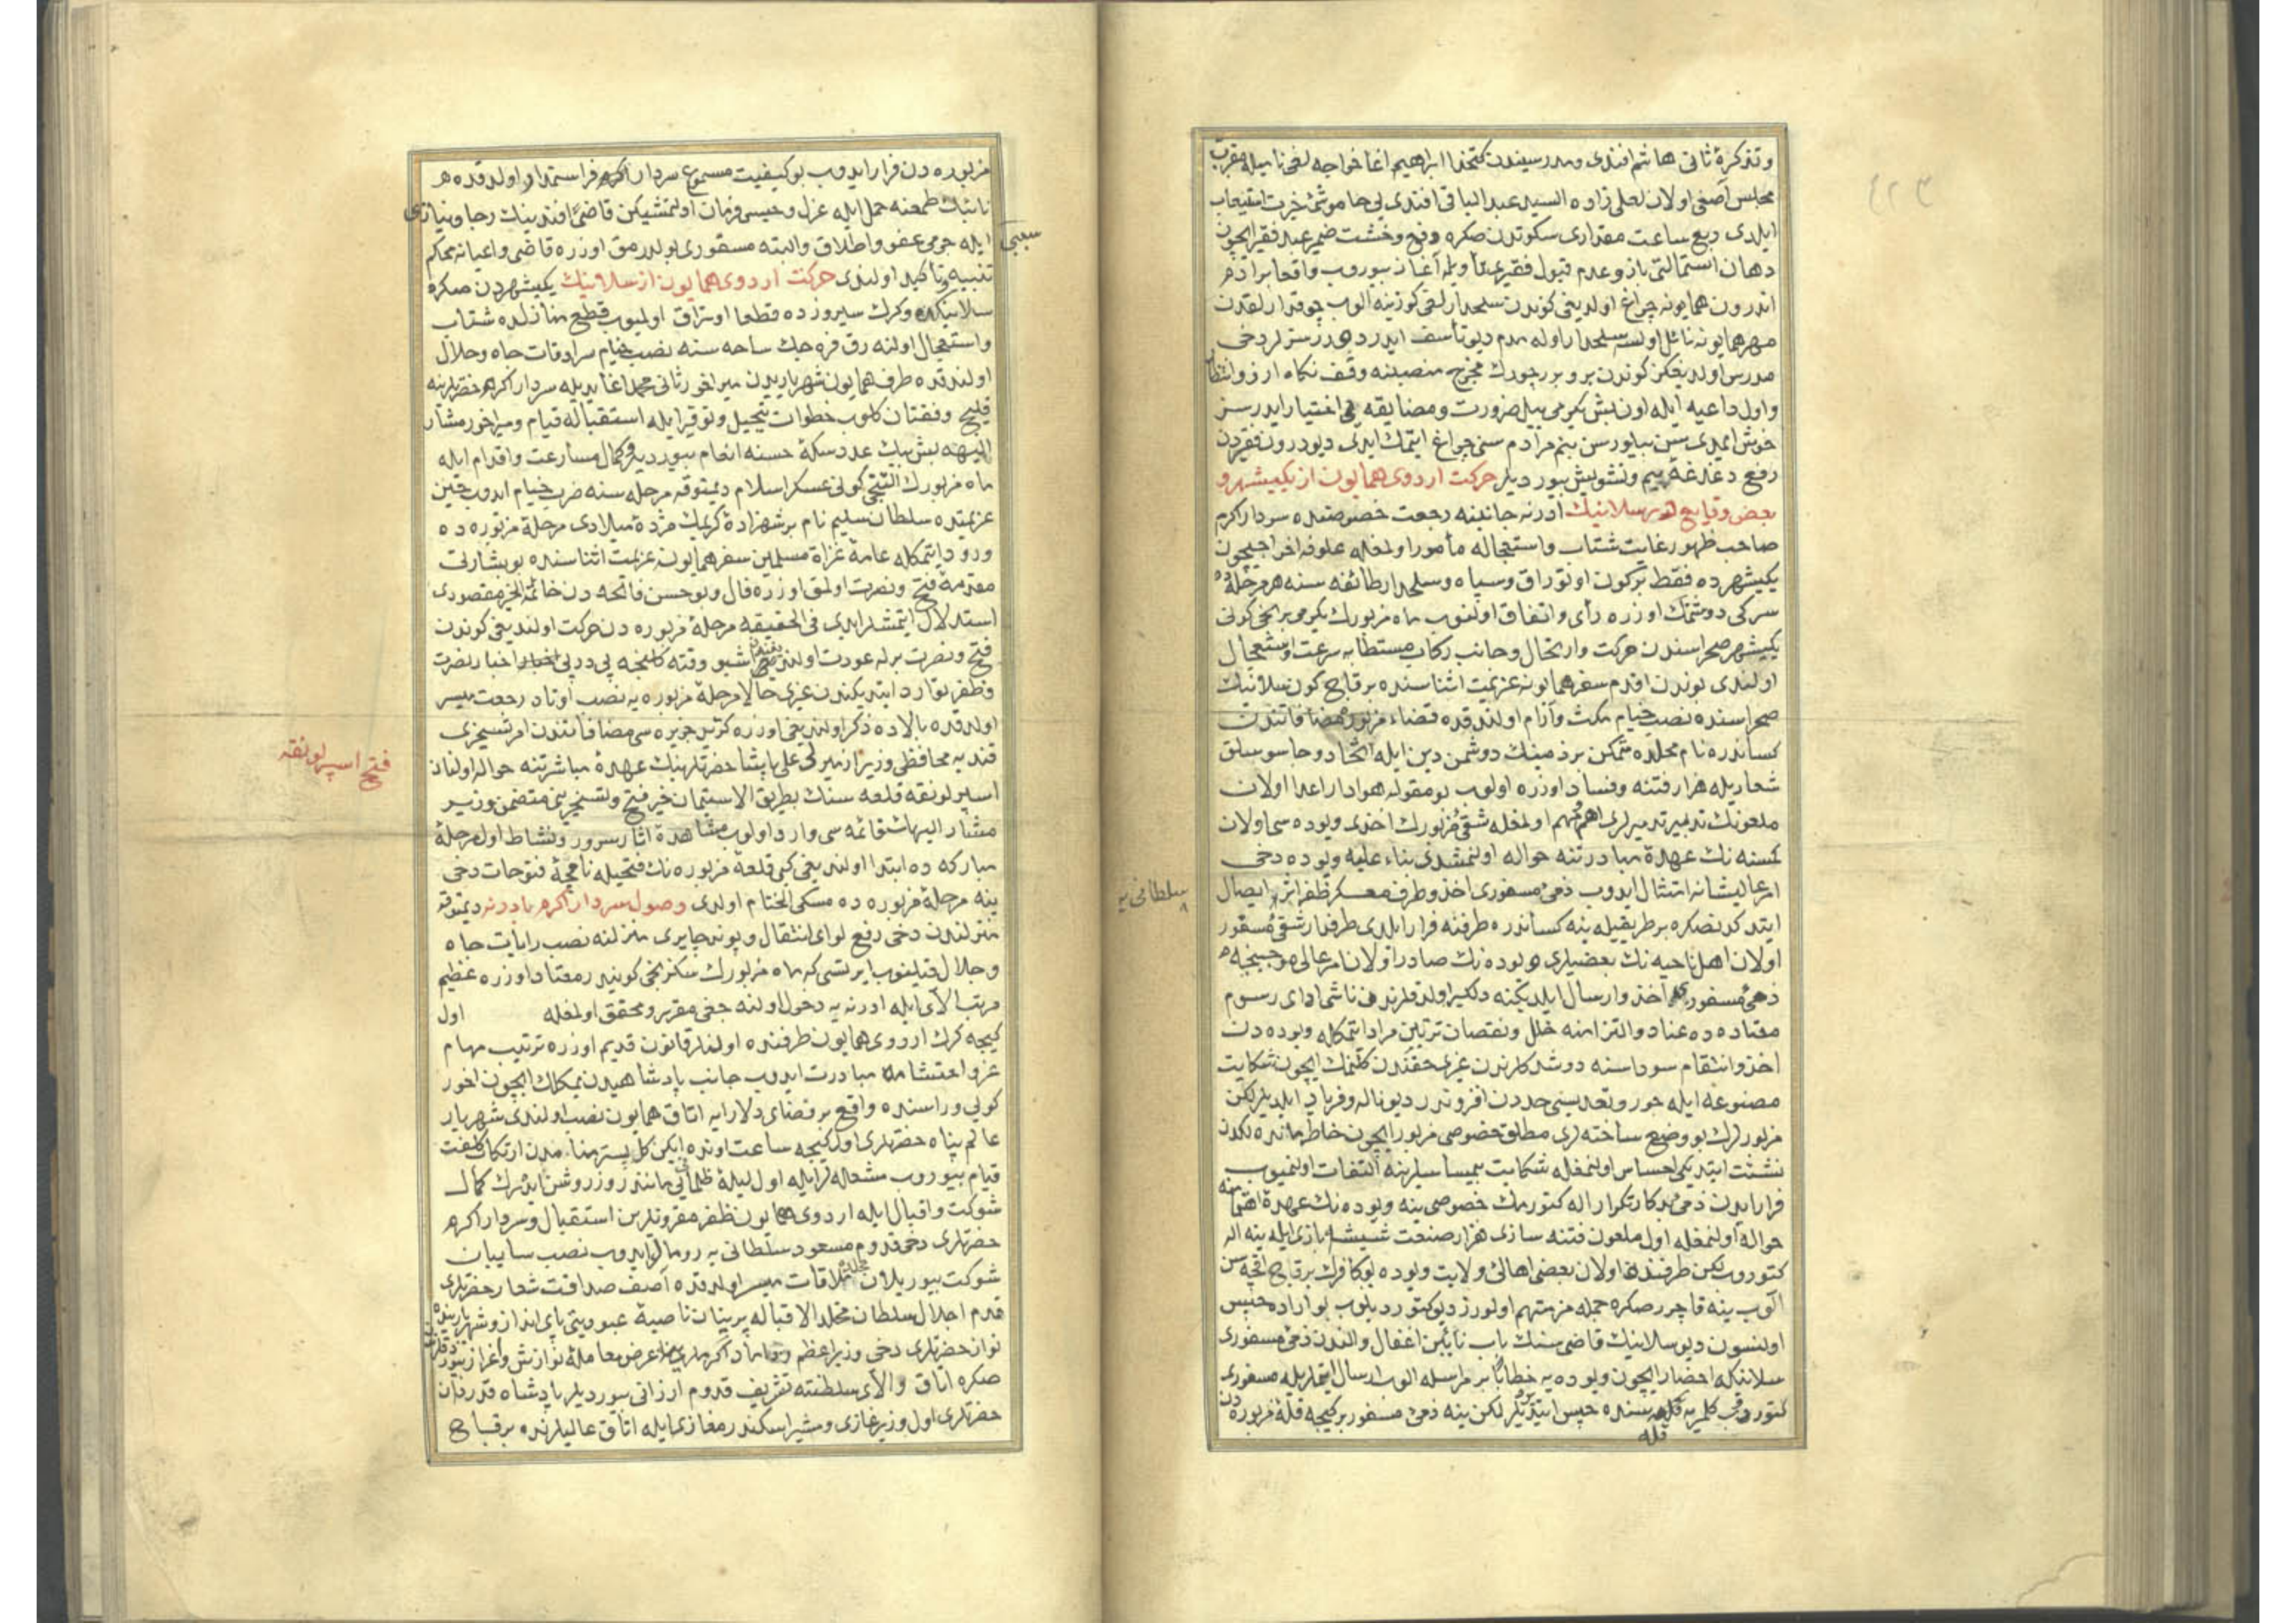 ٤٢٣
و تذكرۀ ثانی هاشم افندی و مدرسیندن كتخدا ابراهیم اغا خواجه لغی نامیله مقرب
مجلس آصفی اولان لعلی زاده السید عبد الباقی افندی یی خاموشئ حیرت استیعاب
ایلدی ربع ساعت مقداری سكوتدن صكره رفع وحشت ضمیر عبد فقیر ایچون
دهان استمالتی باز و عدم قبول فقیری تأویله آغاز بیوروب واقعا برادر
اندرون همایونه چراغ اولدیغی كوندن سلحدارلغی كوزینه الوب چوقدارلقدن
مهر همایونه نائل اولسه سلحدار اوله مدم دیو تأسف ایدر دهدز سزلر دخی
مدرس اولدیغكز كوندن برو بررجورك مخرج منصبنه وقف نكاه ارز و انتظار
و اول داعیه ایله اون بش یكرمی ییل ضرورت و مضایقه یی اختیار ایدرسز
خوش ایمدی سن بیلورسن بنم مرادم سنی چراغ ایتمك ایدی دیو درون فقیردن
رفع دغدغۀ بیم و تشویش بیوردیلر حركت اردوی همایون از یكیشهر و
بعض وقایع در سلانیك ادرنه جانبنه رجعت خصوصنده سردار اكرم
صاحب ظهور غایت شتاب و استعجاله مأمور اولمغله علوفه اخراجیچون
یكیشهرده فقط بر كون اوتوراق و سپاه و سلحدار طائفه سنه هر مرحله ده
سركی دوشتمك اوزره رأی و اتفاق اولنوب ماه مزبورك یكرمی برنجی كونی
یكیشهر صحراسندن حركت و ارتحال و جانب ركاب مستطابه سرعت و استعجال
اولندی بوندن اقدم سفر همایونه عزیمت اثناسنده بر قاچ كون سلانیك
صحراسنده نصب خیام مكث و آرام اولندقده قضاء مزبور مضافاتندن
كساندره نام محلده متمكن بر ذمینك دوشمن دین ایله اتحاد و جاسوسلق
شعاریله هزار فتنه و فساد اوزره اولوب بو مقوله هوادار اعدا اولان
ملعونك تدبیر تدمیرلری اهم مهم اولمغله شقئ مزبورك اخذی ویوده سی اولان
كمسنه نك عهدۀ مبادرتنه حواله اولنمشدی بناء علیه ویوده دخی
امر عالیشانه امتثال ایدوب ذمئ مسفوری اخذ و طرف معسكر ظفر اثره ایصال
سلطانی یه
ایتدكدنصكره بر طریقیله ینه كساندره طرفنه فرار ایلدی طرفدار شقئ مسفور
اولان اهل ناحیه نك بعضیلری ویوده نك صادر اولان امر عالی موجبنجه
ذمئ مسفوری اخذ و ارسال ایلدیكنه دلكیر اولدقلرندن ناشی ادای رسوم
معتاده ده عناد و التزامنه خلل و نقصان ترتیبن مراد ایتمكله ویوده دن
اخذ و انتقام سوداسنه دوشدكلرندن غیری حقندن كلنمك ایچون شكایت
مصنوعه ایله جور و تعدیسی حددن افزوندر دیو ناله و فریاد ایلدیلر لكن
مزبورلرك بو وضع ساخته لری مطلق خصوص مزبور ایچون خاطر مانده لكدن
نشئت ایتدیكی احساس اولنمغله شكایت بیمساسلرینه التفات اولنمیوب
فرار ایدن ذمئ بدكار تكرار اله كتورمك خصوصی ینه ویوده نك عهدۀ اهتمامنه
حواله اولنمغله اول ملعون فتنه سازی هزار صنعت شیشه بازی ایله ینه اله
كتوروب لكن طرفنده اولان بعض اهالئ ولایت ویوده بو كافرك بر قاچ اقچه سن
آلوب ینه قاچرر صكره جمله مز متهم اولورز دیو كتوردیلوب بو اراده حبس
اولنسون دیو سلانیك قاضی سنك باب نائبن اغفال و الندن ذمئ مسفوری
سلانیكه احضار ایچون ویوده یه خطابا بر مراسله الوب ارسال ایتملریله مسفوری
كتوردوب كلمریه قله سنده حبس ایتدیلر لكن ینه ذمئ مسفور بر كیجه قلۀ مزبوره دن
قله
مزبوره دن فرار ایدوب بو كیفیت مسموع سردار اكرم فراستمدار اولدقده
نائبك طمعنه حمل ایله عزل و حبسی فرمان اولنمشیكن قاضئ افندینك رجا و نیازی
سعیی
ایله جرمی عفو و اطلاق و البته مسفوری بولدرمق اوزره قاضی و اعیانه محكم
تنبیه و تأكید اولندی حركت اردوی همایون از سلانیك یكیشهردن صكره
سلانیكده و كرك سیروزده قطعا اوتراق اولمیوب قطع منازلده شتاب
و استعجال اولنه رق فره جك ساحه سنه نصب خیام سرادقات جاه و جلال
اولندقده طرف همایون شهریاریدن میراخور ثانی محمد اغا یدیله سردار اكرم حضرتلرینه
قلیچ و قفتان كلوب خطوات تبجیل و توقیر ایله استقباله قیام و میراخور مشار
الیهه بش بیك عدد سكۀ حسنه انعام بیوردیلر و كمال مسارعت و اقدام ایله
ماه مزبورك التنجی كونی عسكر اسلام دیمتوقه مرحله سنه ضرب خیام ایدوب حین
عزیمتده سلطان سلیم نام بر شهزادۀ كریمك مژدۀ میلادی مرحلۀ مزبوره ده
ورود ایتمكله عامۀ غزاة مسلمین سفر همایونه عزیمت اثناسنده بو بشارتی
مقدمۀ فتح و نصرت اولمق اوزره فال و بو حسن فاتحه دن خاتمة الخیر مقصودی
استدلال ایتمشلر ایدی فی الحقیقه مرحلۀ مزبوره دن حركت اولندیغی كوندن
فتح و نصرت برله عودت اولندیغی اشبو وقته كلنجه پی درپی اخبار نصرت
و ظفر توارد ایتدیكندن غیری حالا مرحلۀ مزبوره یه نصب اوتاد رجعت میسر
اولدقده بالاده ذكر اولندیغی اوزره كرید جزیره سی مضافاتندن امر تسخیری
قندیه محافظی وزیر ازمیرلی علی پاشا حضرتلرینك عهدۀ مباشرتنه حواله اولنان
فتح اسپرلونقه
اسپرلونقه قلعه سنك بطریق الاستیمان خبر فتح و تسخیرینی متضمن وزیر
مشار الیهك قائمه سی وارد اولوب مشاهدۀ اثار سرور و نشاط اول مرحلۀ
مباركه ده ابتدا اولندیغی كبی قلعۀ مزبوره نك فتحیله نامچۀ فتوحات دخی
ینه مرحلۀ مزبوره ده مسكی الختام اولدی وصول سردار اكرم بادرنه دیمتوقه
منزلندن دخی رفع لوای انتقال و بونه جایری منزلنه نصب رایات جاه
و جلال قیلنوب ایرتسی كه ماه مزبورك سكزنجی كونیدر معتاد اوزره عظیم
مرتب آلای ایله ادرنه یه دخول اولنه جغی مقرر و محقق اولمغله اول
كیجه كرك اردوی همایون طرفنده اولنلر قانون قدیم اوزره ترتیب مهام
عز و احتشامه مبادرت ایدوب جانب پادشاهیدن یمكلك ایچون اخور
كولی وراسنده واقع بر فضای دلارایه اتاق همایون نصب اولندی شهریار
عالم پناه حضرتلری اول كیجه ساعت اونده ایكن
قیام بیوروب مشعله لر ایله اول لیلۀ ظلمانی یی مانند روز روشن ایدرك كمال
شوكت و اقبال ایله اردوی همایون ظفر مقرونلرین استقبال و سردار اكرم
حضرتلری دخی قدوم مسعود سلطانی یه رومال ایدوب نصب سایبان
شوكت بیوریلان محلده ملاقات میسر اولدقده آصف صداقت شعار حضرتلری
قدم اجلال سلطان مخلد الاقباله پرنیان ناصیۀ عبودیتی پای انداز و شهریار بنده
نواز حضرتلری دخی وزیر اعظم عرض معاملۀ نوازش و اعزاز بیوردقلرندن
صكره اتاق والای سلطنته تشریف قدوم ارزانی بیوردیلر پادشاه قدردان
حضرتلری اول وزیر غازی و مشیر اسكندر مغازیله اتاق عالیلرنده بر قاچ